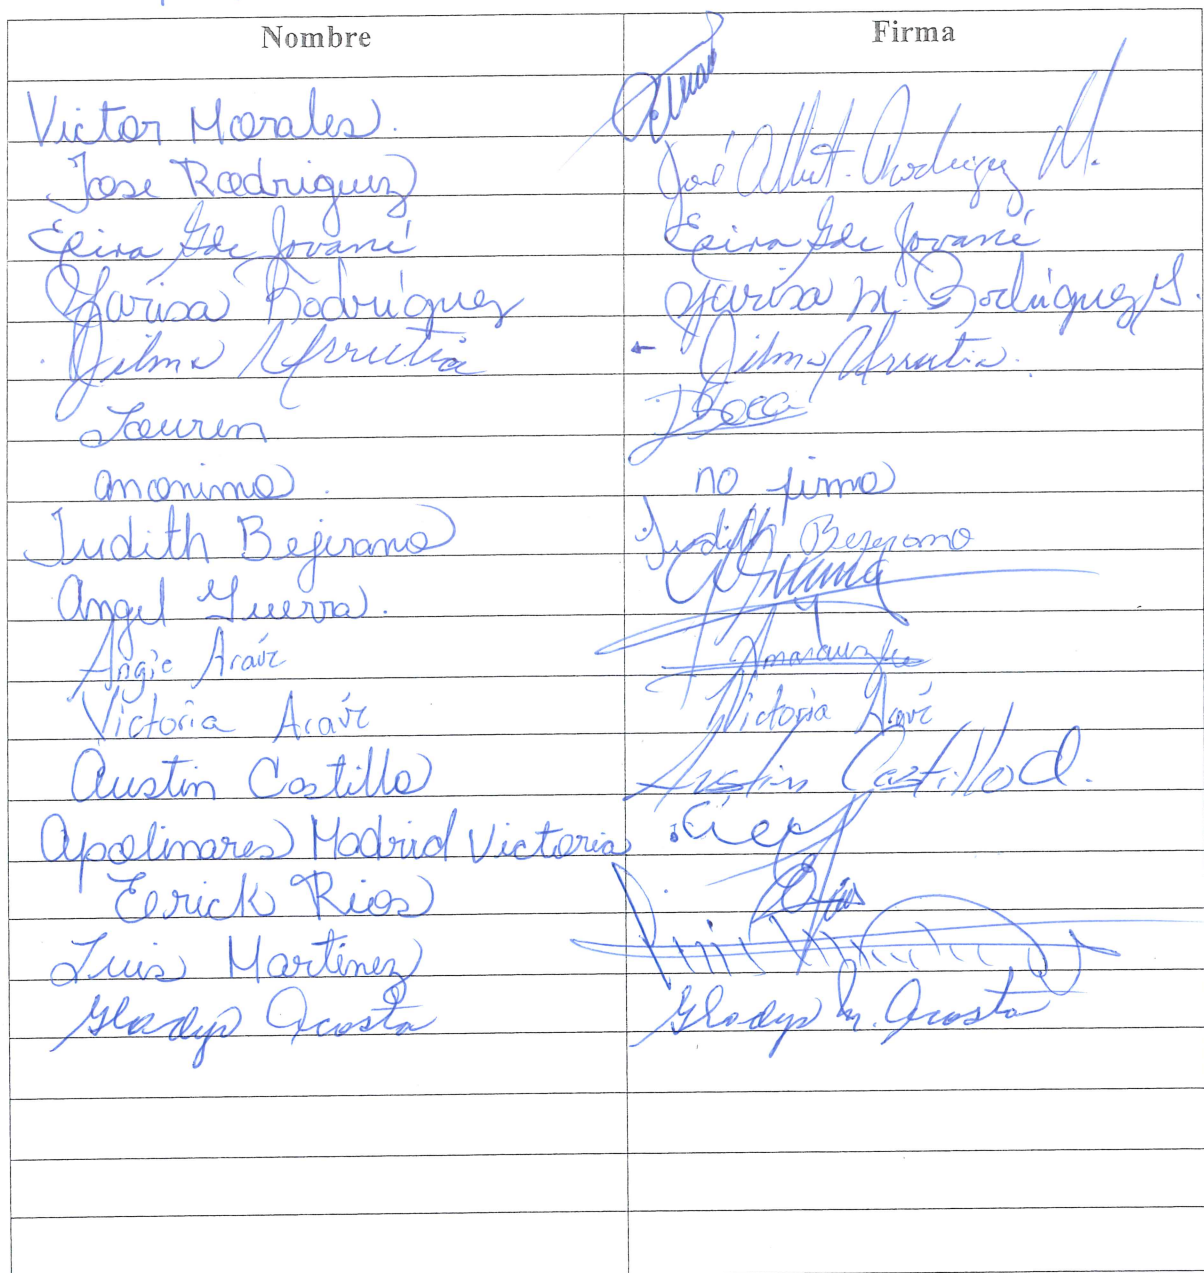 Nombre Firma
Victor Morales.
Jose Rodriguez José Albert. Rodriguez M.
Eeira G de Jované Eeira G de Jované
Yarisa Rodríguez Yarisa M. Rodríguez G.
Dilma Urrutia Dilma Urrutia.
Lauren
anonimo. no firmo
Judith Bejerano Judith Bejerano
Angel Guerra.
Angie Araúz
Victoria Araúz Victoria Araúz
Austin Castillo Austin Castillo d.
Apolinares Madrid Victoria
Eerick Rios
Luis Martinez
Gladys Acosta Gladys M. Acosta